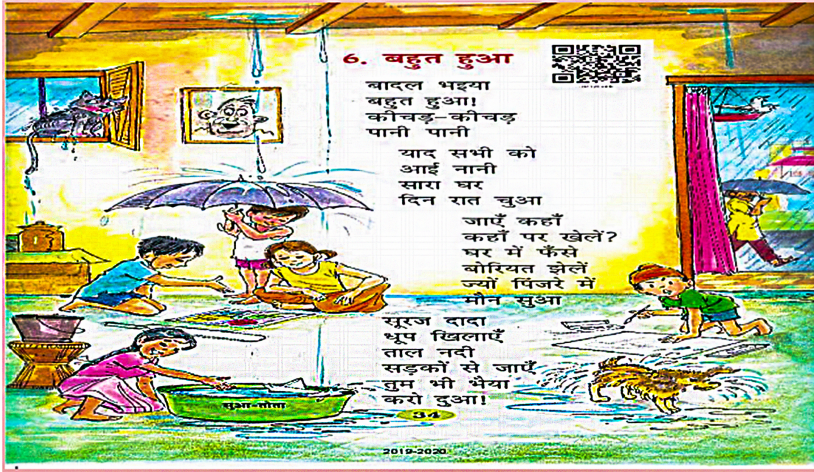 6. बहुत हुआ
बादल भइया
बहुत हुआ!
कीचड़-कीचड़
पानी पानी
याद सभी को
आई नानी
सारा घर
दिन रात चुआ
जाएँ कहाँ
कहाँ पर खेलें?
घर में फँसे
बोरियत झेलें
ज्यों पिंजरे में
मौन सुआ
सूरज दादा
धूप खिलाएँ
ताल नदी
सड़कों से जाएँ
तुम भी भैया
करो दुआ!
सुआ-तोता
34
2019-2020